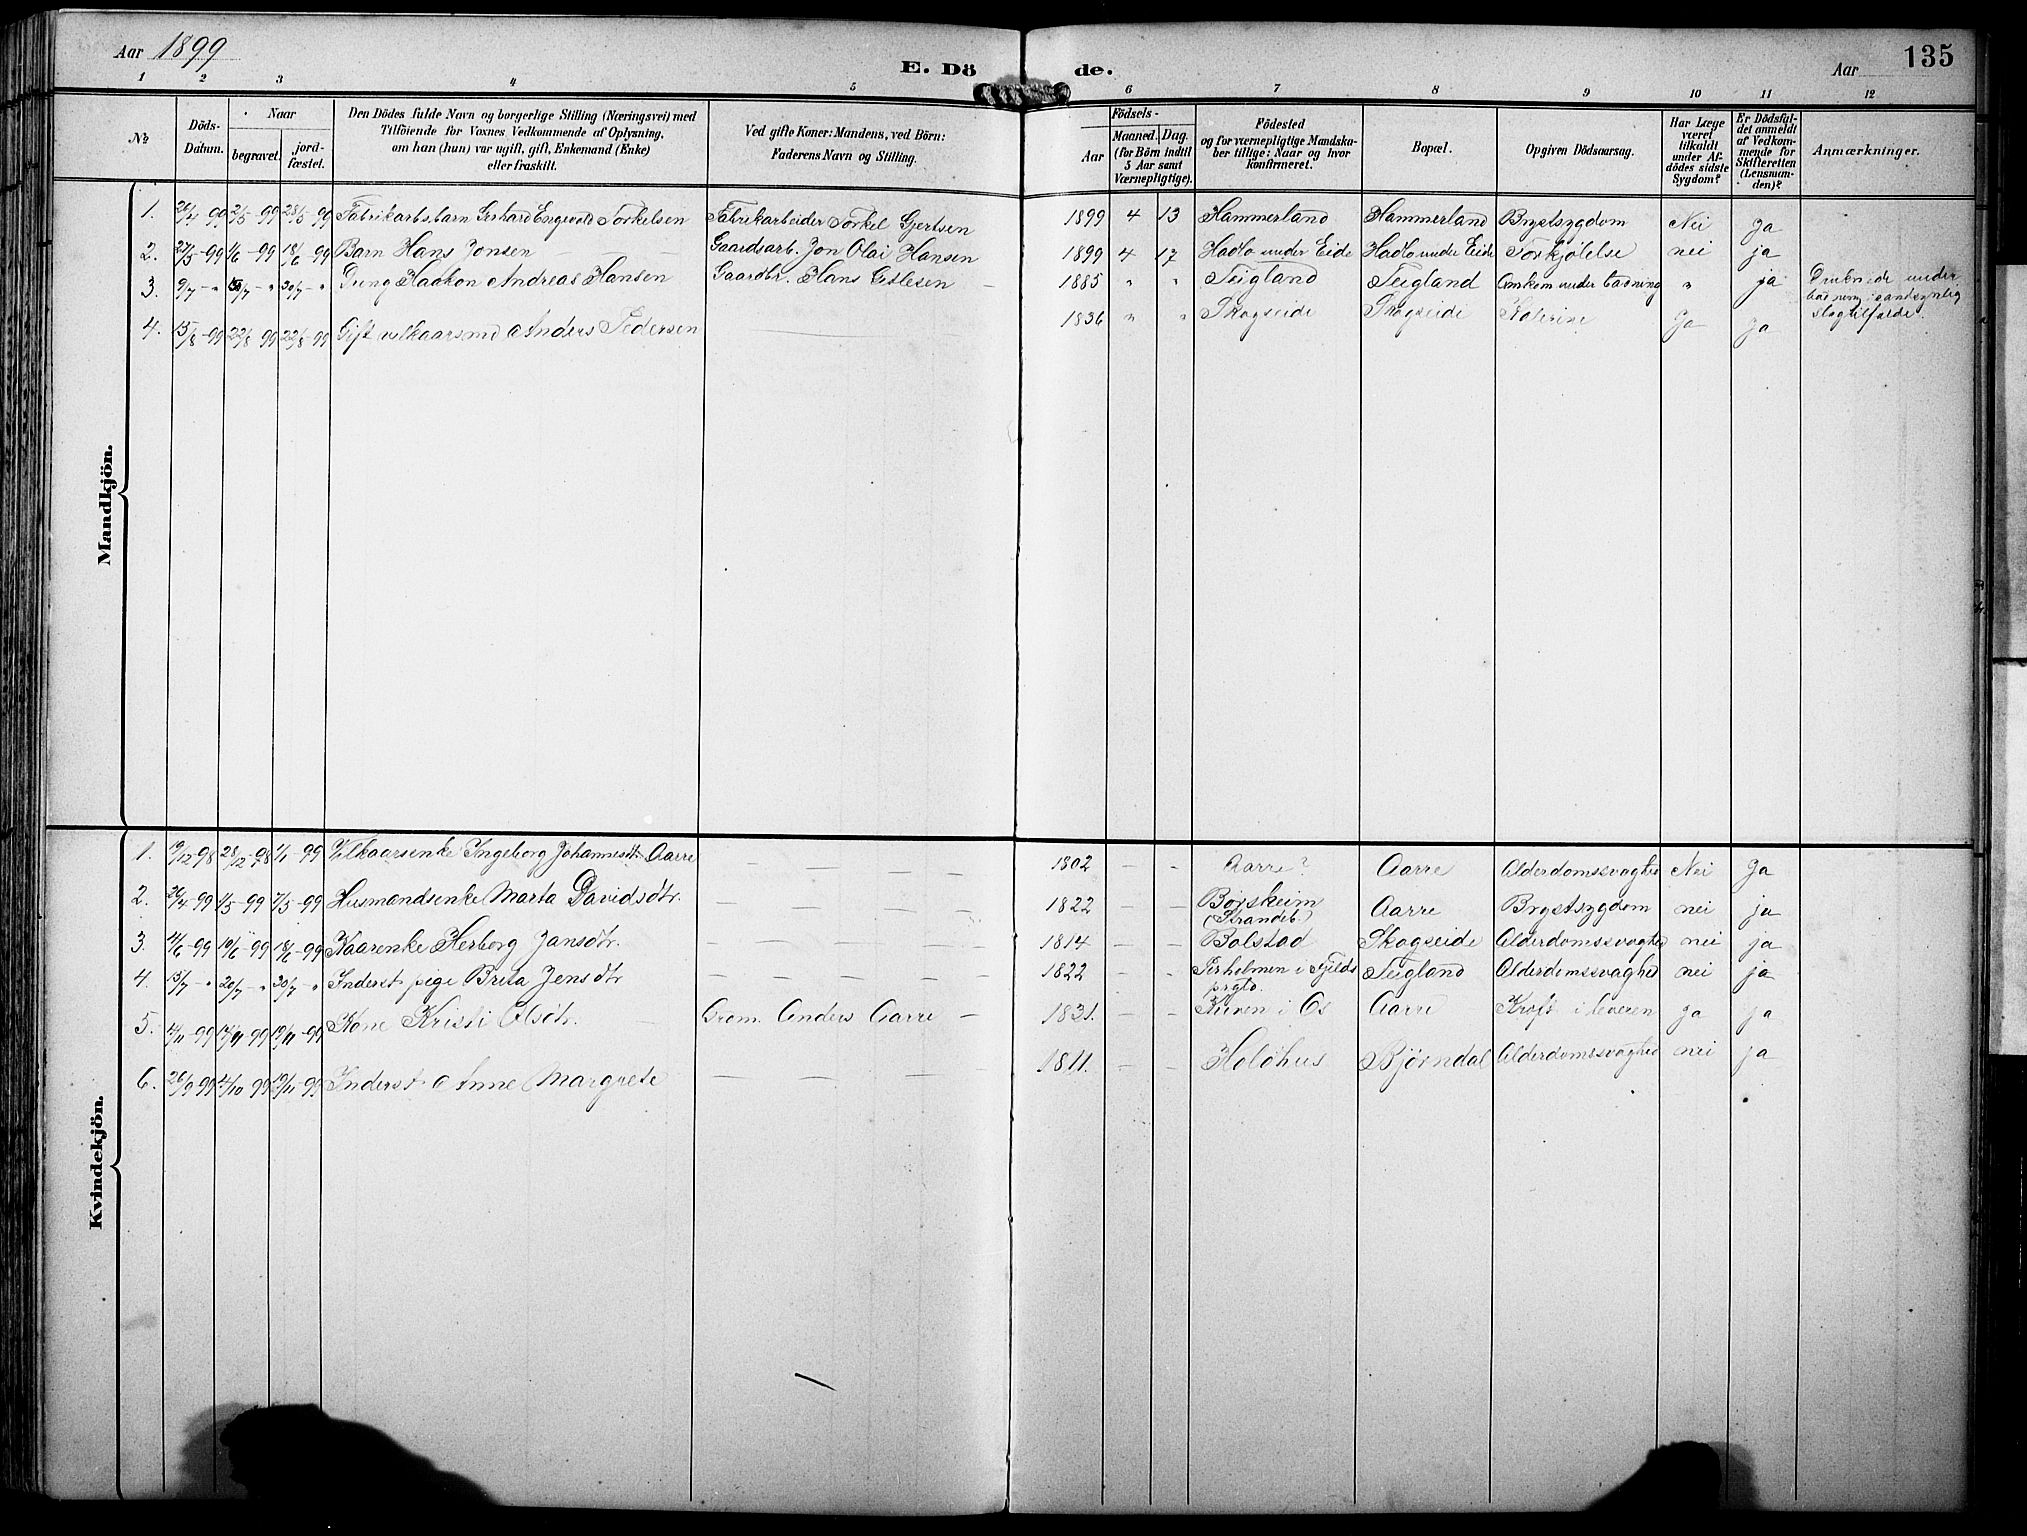 Aar 1899
E. Döde.
Aar
135
1 2 3 4 5 6 7 8 9 10 11 12
№
Döds-
Datum.
Naar
begravet.
jord-
fæstet.
Den Dödes fulde Navn og borgerlige Stilling (Næringsvei) med
Tilföiende for Voxnes Vedkommende af Oplysning,
om han (hun) var ugift, gift, Enkemand (Enke)
eller fraskilt.
Ved gifte Koner: Mandens, ved Börn:
Faderens Navn og Stilling.
Födsels-
Aar
Maaned. Dag.
(for Börn indtil
5 Aar samt
Værnepligtige).
Födested
og for værnepligtige Mandska-
ber tillige: Naar og hvor
konfirmeret.
Bopæl.
Opgiven Dödsaarsag.
Har Læge
været
tilkaldt
under Af-
dödes sidste
Sygdom?
Er Dödsfal-
det anmeldt
af Vedkom-
mende for
Skifteretten
(Lensman-
den)?
Anmærkninger.
Mandkjön.
1. 26/4 99 2/5 99 28/5 99 Fabrikarbs.barn Gerhard Engevald Torkelsen Fabrikarbeider Torkel Gjertsen 1899 4 13 Hammerland Hammerland Brystsygdom Nei Ja
2. 27/5 99 1/6 99 18/6 99 Barn Hans Jonsen Gaardsarb. Jon Olai Hansen 1899 4 17 Hadlo under Eide Hadlo under Eide Forkjölelse nei ja
3. 9/7 - " /7 - " 30/7 - " Dreng Haakon Andreas Hansen Gaardbr. Hans Getlesen 1885 " " Teigland Teigland Omkom under badning " ja Druknede under
badning; sandsynlig
slagtilfælde.
4. 15/8 99 22/8 99 22/8 99 Gift vilkaarsmd Anders Pedersen 1836 " " Skogseide Skogseide Kolerine Ja Ja
Kvindekjön.
1. 19/12 98 28/12 98 1/1 99 Vilkaarsenke Ingeborg Johannesdtr. Aarre 1802 Aarre? Aarre Alderdomssvaghed Nei Ja
2. 26/4 99 1/5 99 7/5 99 Husmandsenke Marta Davidsdtr. 1822 Börsheim
(Strandeb.) Aarre Brystsygdom nei ja
3. 4/6 99 10/6 99 18/6 99 Kaarenke Herborg Jansdtr. 1814 Bolstad Skogseide Alderdomssvaghed nei ja
4. 15/7 - " 20/7 - " 30/7 - " Inderst pige Brita Jensdtr 1822 Teigland Alderdomssvaghed nei ja
prgld.
5. 12/11 99 17/11 99 19/11 99 Kone Kristi Olsdtr. Grdm. Anders Aarre 1831. Kuven i Os Aarre Kræft i leveren ja ja
6. 26/9 99 2/10 99 19/11 99 Inderst Anne Margrete 1811. Holdhus Björndal Alderdomssvaghed nei ja